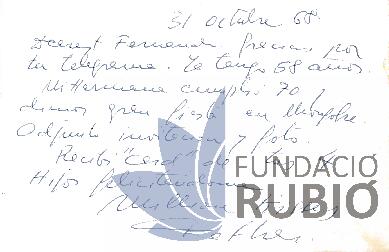 31 Octubre 68.
Dearest Fernando gracias por
tu telegrama. Ya tengo 58 años.
Mi Hermana cumplió 70 y
dimos gran fiesta en
Adjunto invitación y foto.
Recibí Card de
Hijos felicitándome
Million
FUNDACIÓ
RUBIÓ